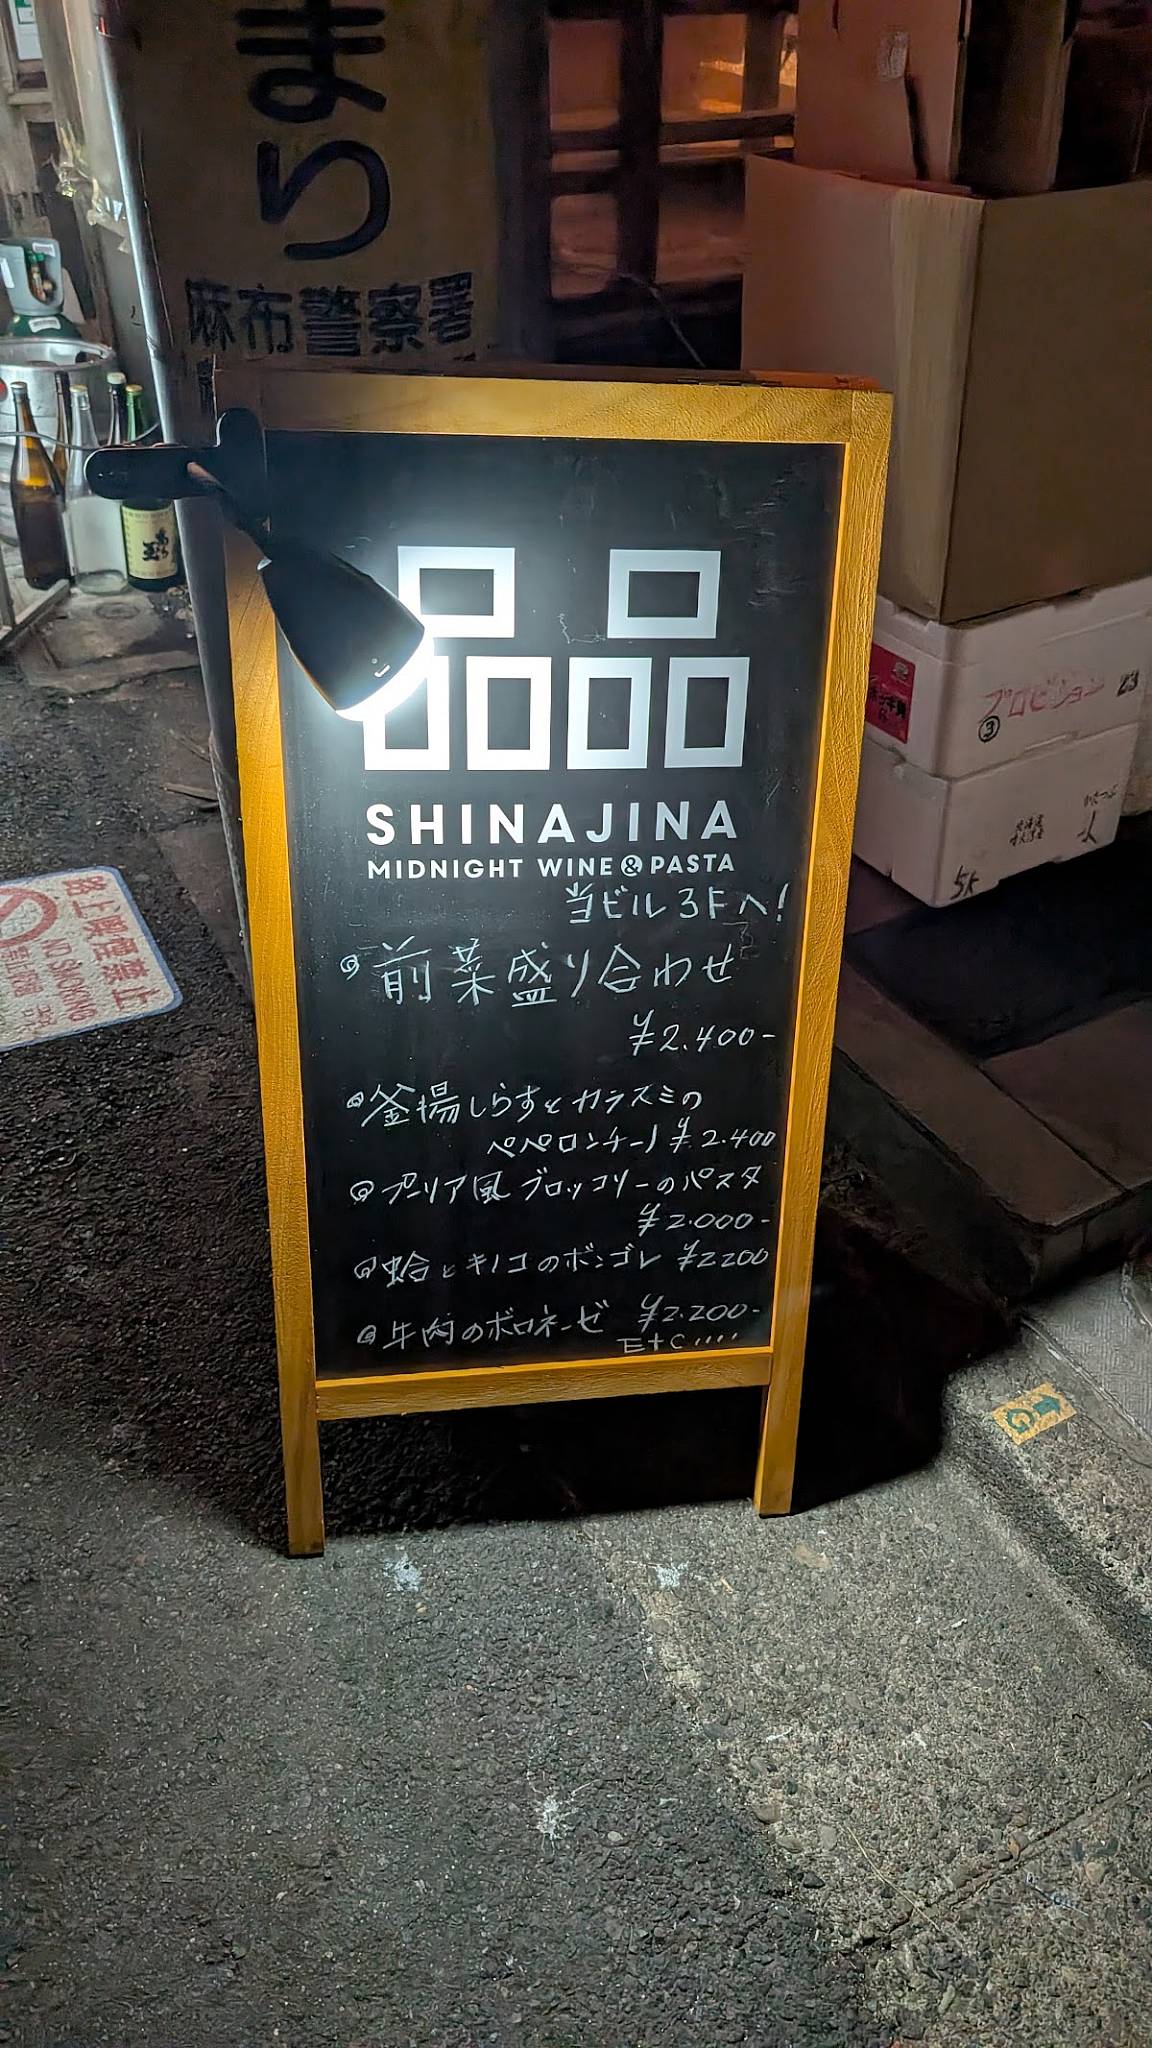 まり
麻布警察署
SHINAJINA
MIDNIGHT WINE & PASTA
当ビル3Fへ!
前菜盛り合わせ
¥2.400-
釜揚しらすとカラスミの
ペペロンチーノ ¥2.400
プーリア風ブロッコリーのパスタ
¥2.000-
蛤とキノコのボンゴレ ¥2200
牛肉のボロネーゼ ¥2.200-
Etc....
プロビジョン 23
③
5K
路上喫煙禁止
NO SMOKING
G